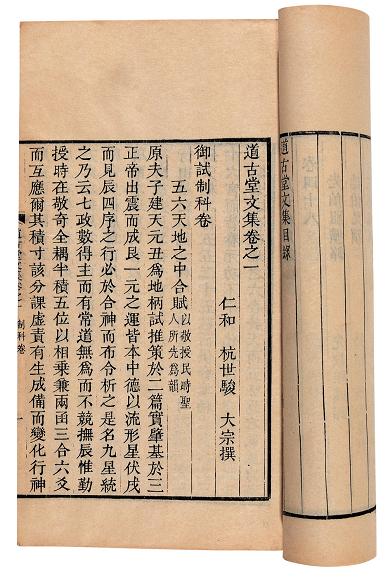 道古堂文集目錄
道古堂文集卷之一
仁和 杭世駿 大宗撰
御試制科卷
五六天地之中合賦以敬授民時聖人所先爲韻
原夫子建天元丑爲地柄試推策於二篇實肇基於三
正帝出震而成艮一元之運皆本中德以流形星伏戌
而見辰四序之行必於合神而布合析之是名九星統
之乃云七政數得主而有常道無爲而不競撫辰惟勤
授時在敬奇全耦半積五位以相乗兼兩函三合六爻
而互應爾其積寸該分課虛責有生成備而變化行神
制科卷
一